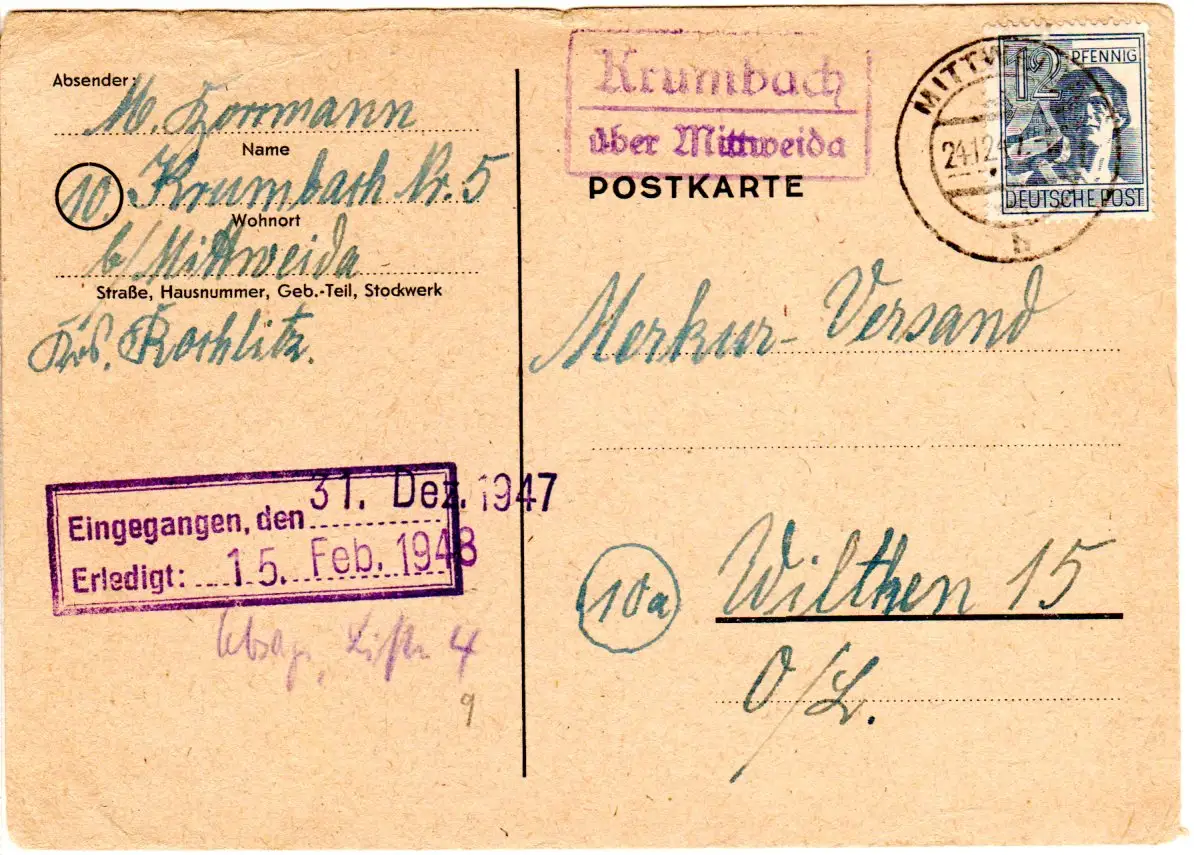 Absender:
M. Zorrmann
Name
10. Krumbach Nr. 5
Wohnort
b/Mittweida
Straße, Hausnummer, Geb.-Teil, Stockwerk
Krs. Rochlitz.
Krumbach
über Mittweida
POSTKARTE
MITTW
24.12.47
b
12 PFENNIG
DEUTSCHE POST
Merkur-Versand
10a Wilthen 15
O/L.
Eingegangen, den 31. Dez. 1947
Erledigt: 15. Feb. 1948
Liste 4
9